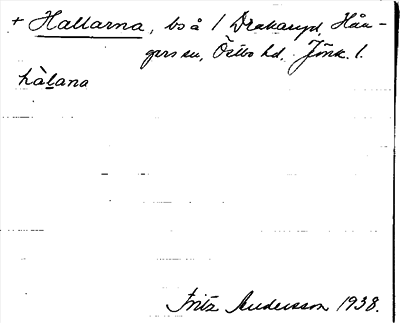 + Hallarna, bs å 1 Drakaryd, Hån-
gers sn, Östbo hd. Jönk. l.
hàlana
Fritz Andersson 1938.